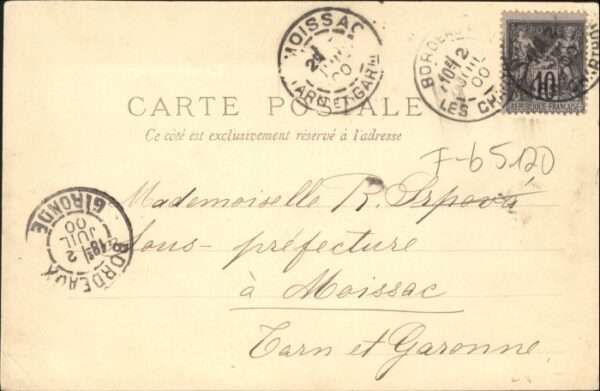 MOISSAC
TARN-ET-GARNE
BORDEAUX
10E 2
JUIL
00
LES CH
10
REPUBLIQUE FRANÇAISE
CARTE POSTALE
Ce côté est exclusivement réservé à l'adresse
F-65120
Mademoiselle R.
Sous-préfecture
à Moissac
Tarn et Garonne
BORDEAUX
2
JUIL
00
GIRONDE